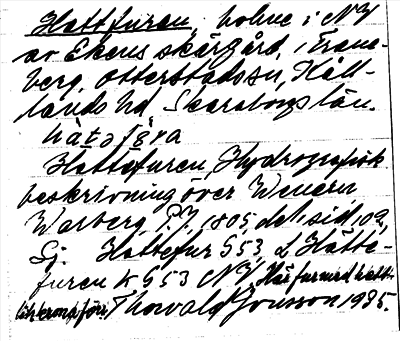 Hattefuren, holme i NV
av Ekens skärgård, i Frane-
berg, Otterstads sn, Kåll-
lands hd, Skaraborgs län.
hatəfɯra
Hattefuren, Hydrografisk
beskrivning över Wenern
Warberg P.J. 1805, del, sid. 109,
Sj. Hattefur S53, L Hätte-
furen k G53 NV, Här fur med hatt-
lik krona förr. Thorvald Jonsson 1935.